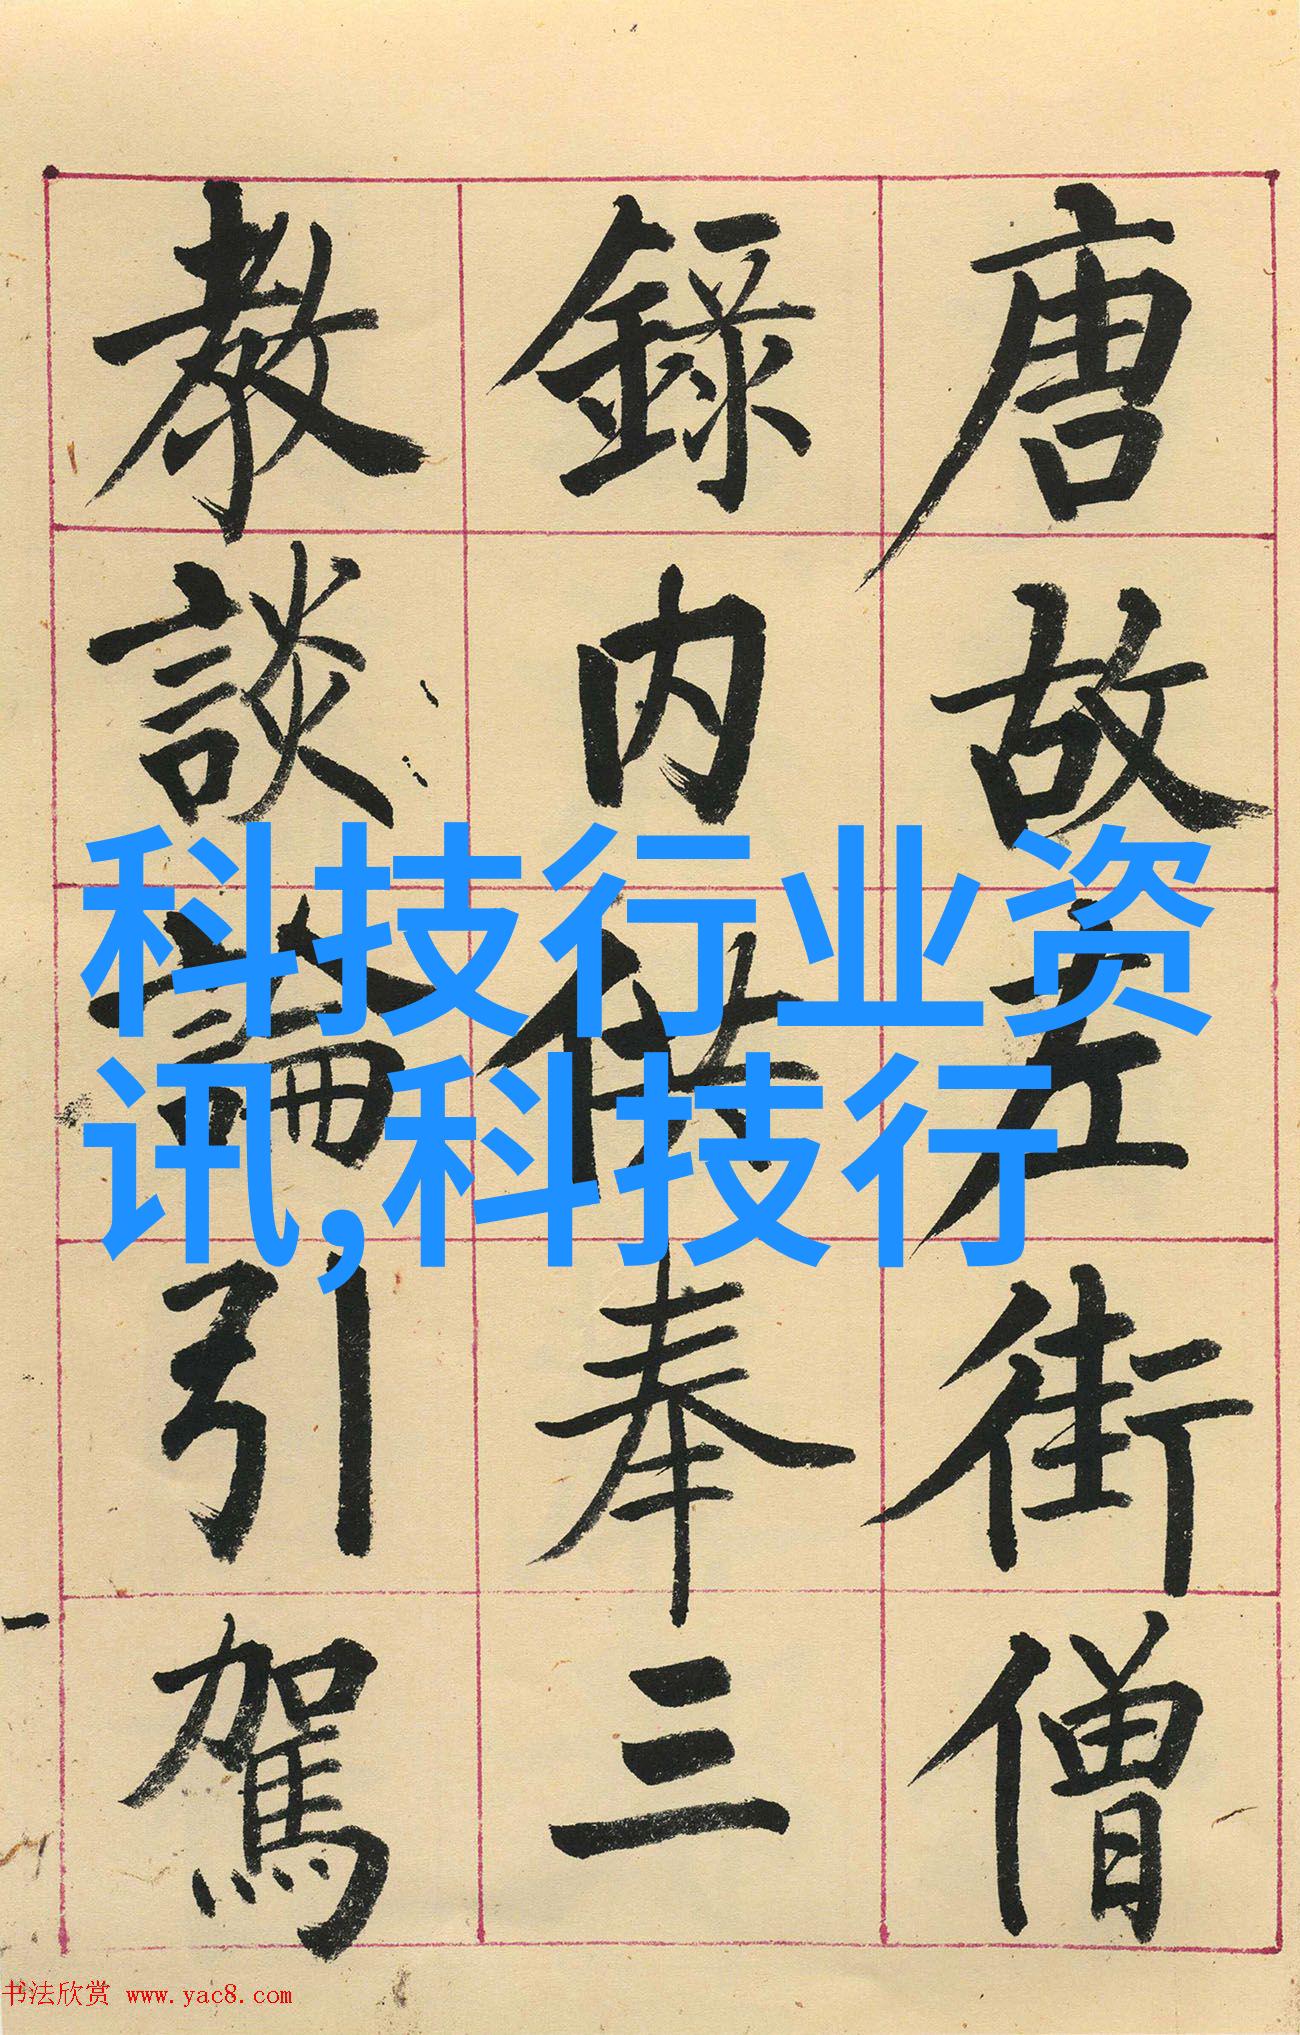 唐故左街僧
錄内供奉三
教談論引駕
科技行业资
讯,科技行
书法欣赏 www.yac8.com